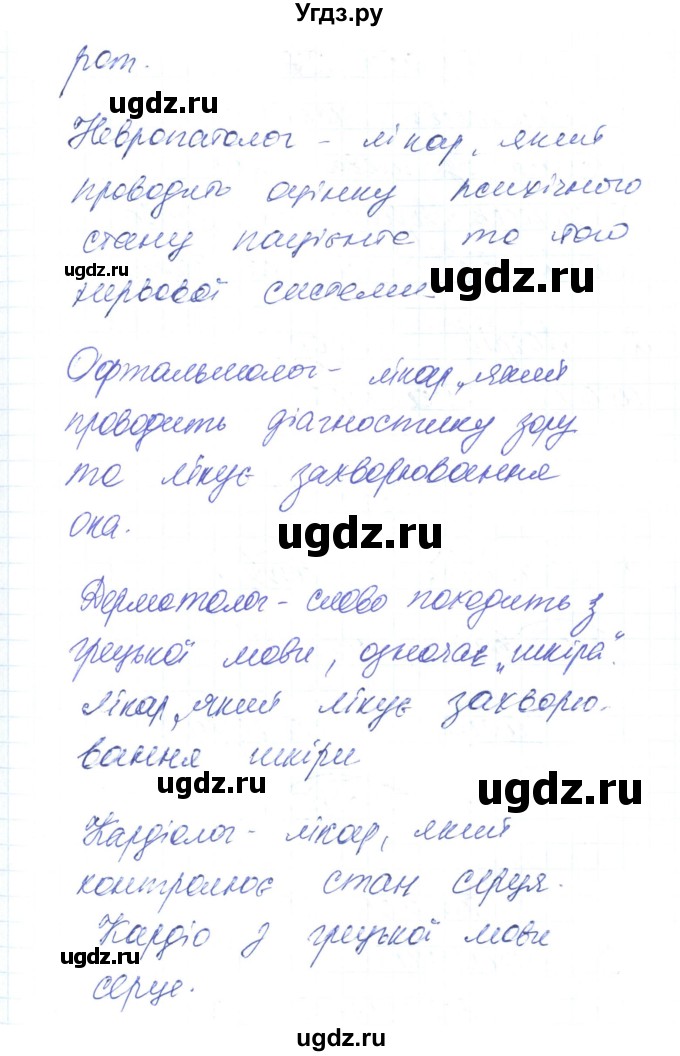 Угдз.ру
рот.
ugdz.ru
Невропатолог - лікар, який
проводить оцінку психічного
стану пацієнта та його
ugdz.ru
ugdz.ru
нервової системи.
Офтальмолог - лікар, який
проводить діагностику зору
та лікує захворювання
ока.
ugdz.ru
Дерматолог - слово походить з
грецької мови, означає „шкіра“.
Лікар, який лікує захворю-
вання шкіри
ugdz.ru
ugdz.ru
Кардіолог - лікар, який
контролює стан серця.
Кардіо з грецької мови
ugdz.ru
серце.
ugdz.ru